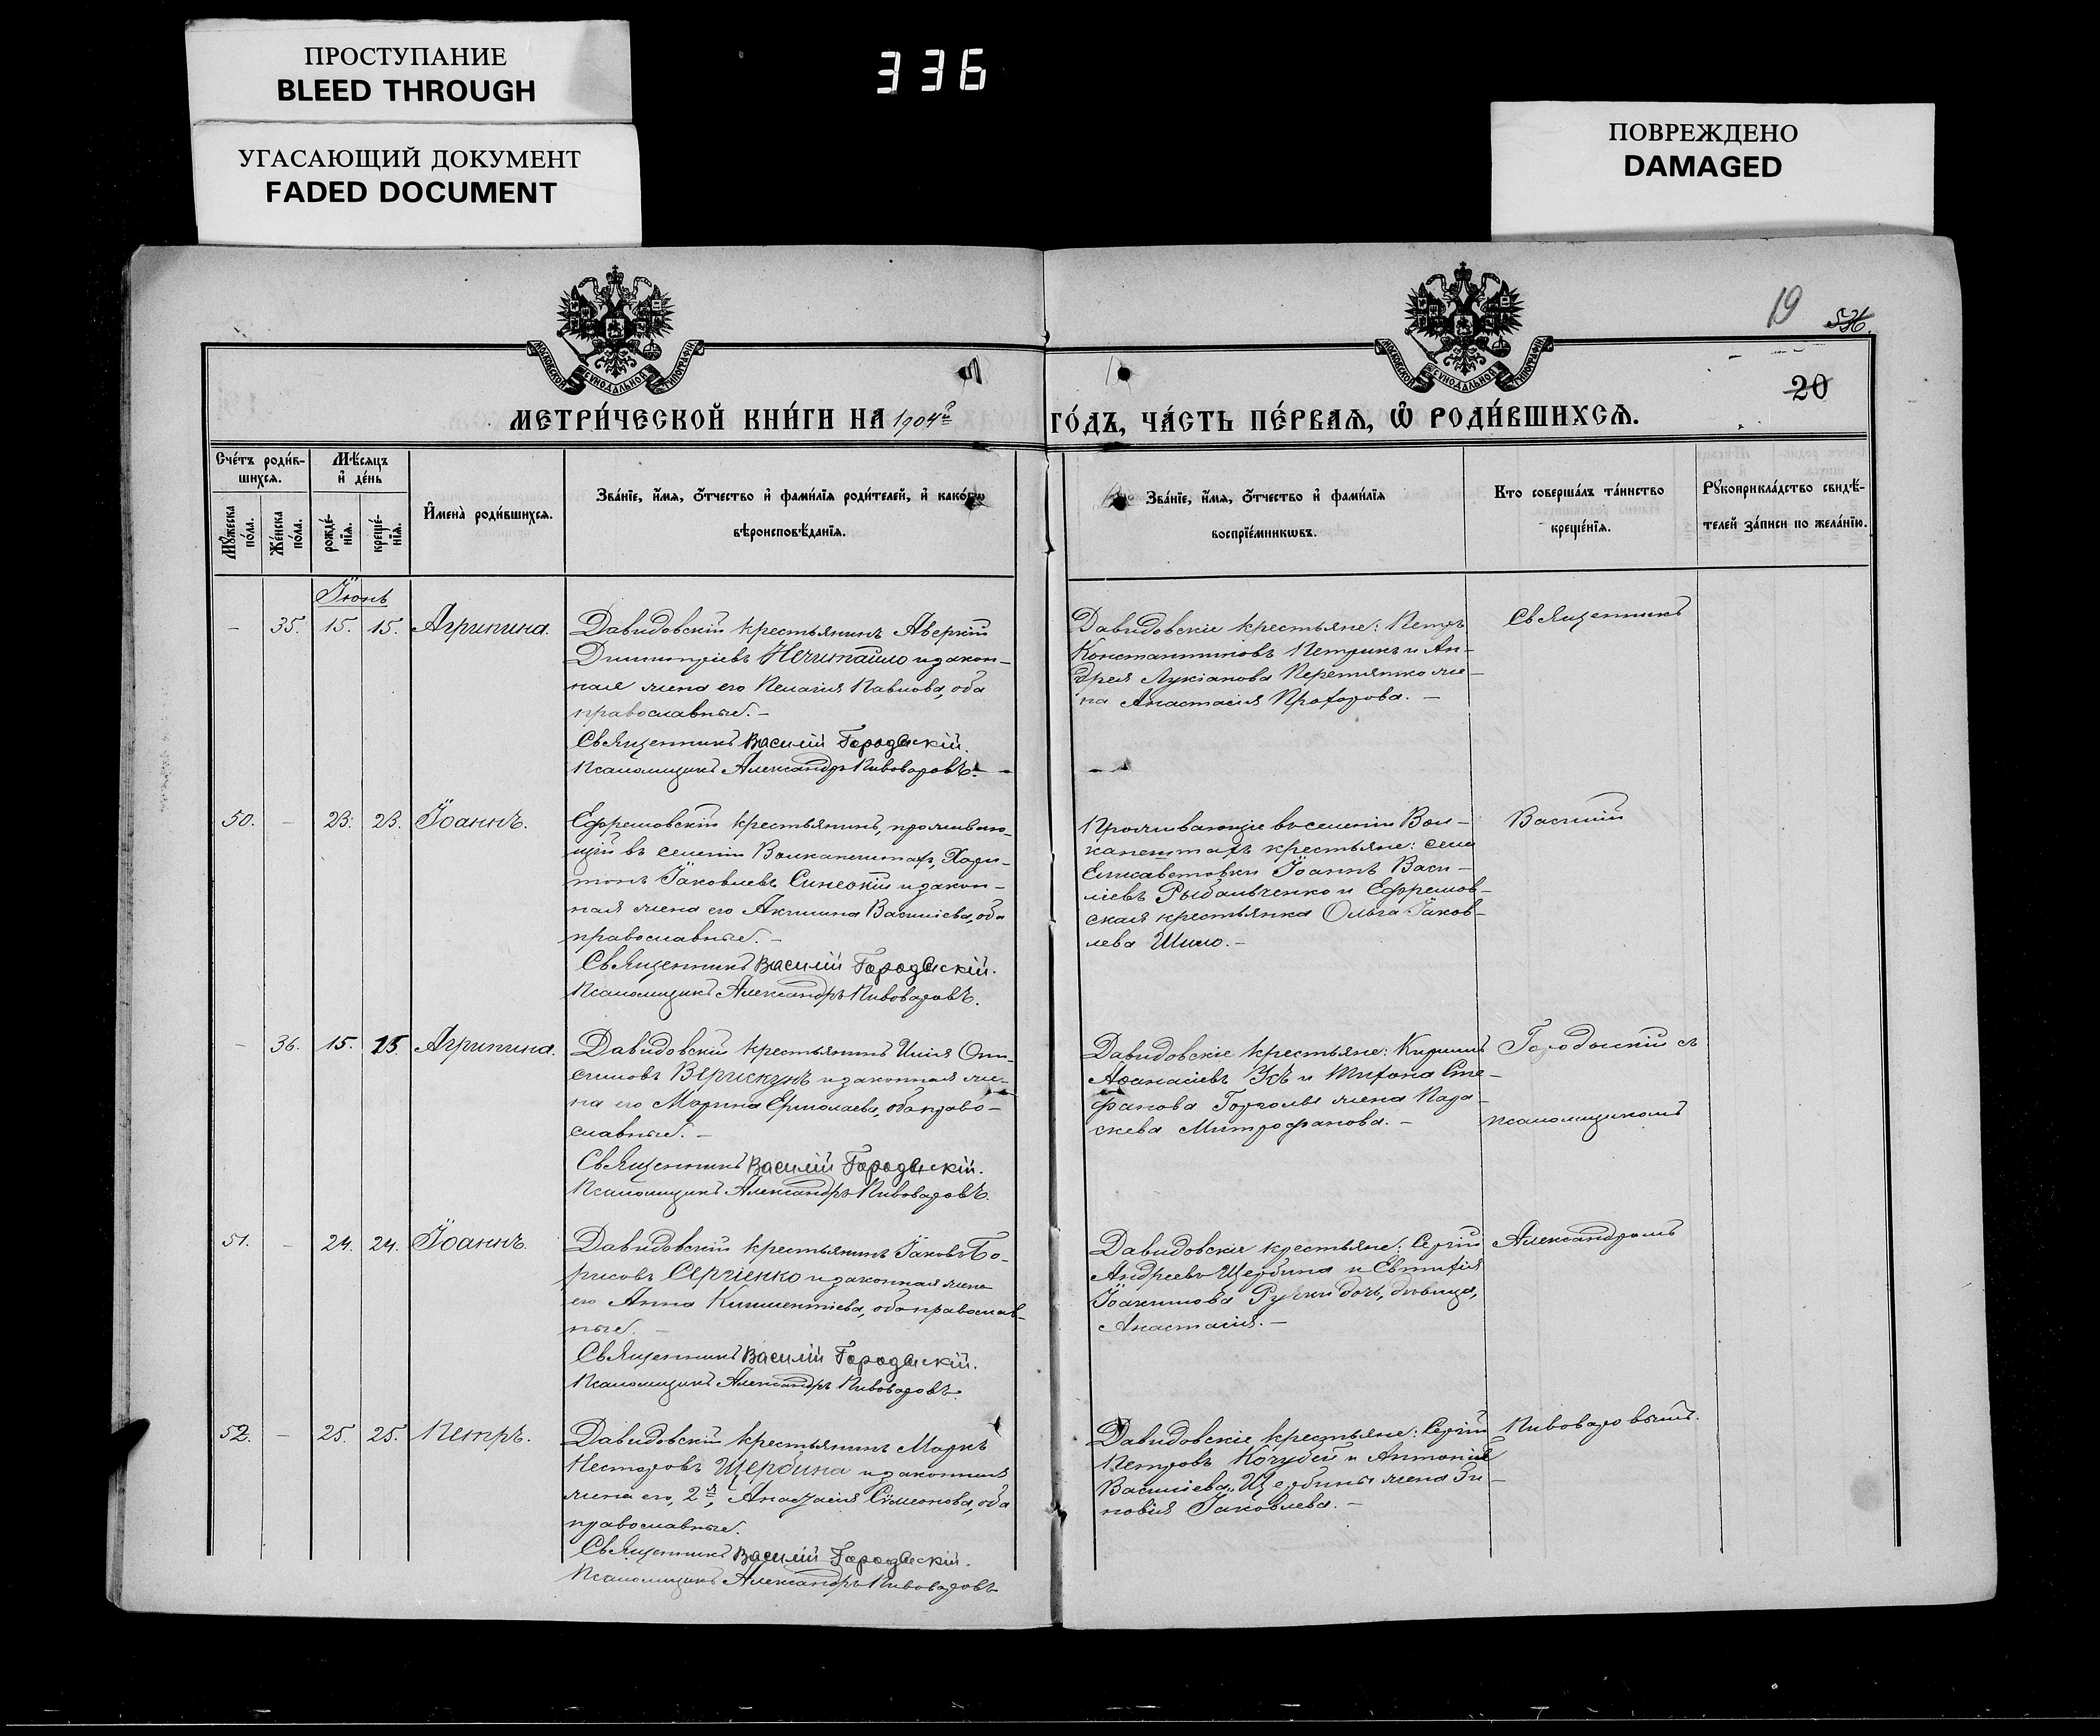 ПРОСТУПАНИЕ
BLEED THROUGH
УГАСАЮЩИЙ ДОКУМЕНТ
FADED DOCUMENT
336
ПОВРЕЖДЕНО
DAMAGED
19
20
МОСКОВСКОЙ СѴНОДАЛЬНОЙ ТИПОГРАФІИ
МОСКОВСКОЙ СѴНОДАЛЬНОЙ ТИПОГРАФІИ
МЕТРИ́ЧЕСКОЙ КНИ́ГИ НА 1904й ГО́ДЪ, ЧА́СТЬ ПЕ́РВАЯ, Ѡ РОДИ́ВШИХСѦ.
Сче́тъ роди́в-
шихсѧ.
Мꙋ́жеска по́ла.
Же́нска по́ла.
Мѣ́сѧцъ
и҆ де́нь
рожде́-
нїѧ.
креще́-
нїѧ.
И҆мена̀ роди́вшихсѧ.
Зва́нїе, и҆́мѧ, ѻ҆́тчество и҆ фами́лїѧ роди́телей, и҆ како́гѡ
вѣроисповѣ́данїѧ.
Зва́нїе, и҆́мѧ, ѻ҆́тчество и҆ фами́лїѧ
воспрїе́мникѡвъ.
Кто совершáлъ тáинство
креще́нїѧ.
Рꙋкоприклáдство свидѣ́-
телей зáписи по желáнїю.
Іюнь
— 35. 15. 15. Агрипина.
Давидовскій крестьянинъ Аверкій
Димитріевъ Нечипайло и закон-
ная жена его Пелагія Павлова, оба
православные. —
Священникъ Василій Городыскій.
Псаломщикъ Александръ Пивоваровъ. —
Давидовскіе крестьяне: Петръ
Константиновъ Петрикъ и Ан-
дрея Лукіанова Перетятко же-
на Анастасія Прохорова. —
Священникъ
50. — 23. 23. Іоаннъ.
Ефремовскій крестьянинъ, проживаю-
щій въ селеніи Волканештахъ, Хари-
тонъ Іаковлевъ Синеокій и закон-
ная жена его Акилина Василіева, оба
православные. —
Священникъ Василій Городыскій.
Псаломщикъ Александръ Пивоваровъ.
Проживающіе въ селеніи Вол-
канештахъ крестьяне: села
Елисаветовки Іоаннъ Васи-
ліевъ Рыбальченко и Ефремов-
ская крестьянка Ольга Іаков-
лева Шило. —
Василій
— 36. 15. 15. Агрипина.
Давидовскій крестьянинъ Илія Они-
симовъ Верискунъ и законная же-
на его Марина Ермолаева, оба право-
славные. —
Священникъ Василій Городыскій.
Псаломщикъ Александръ Пивоваровъ.
Давидовскіе крестьяне: Кириллъ
Аѳанасіевъ Усъ и Тихона Сте-
фанова Горголья жена Пара-
скева Митрофанова. —
Городыскій съ
псаломщикомъ
51. — 24. 24. Іоаннъ.
Давидовскій крестьянинъ Іаковъ Бо-
рисовъ Сергіенко и законная жена
его Анна Климентіева, оба православ-
ные. —
Священникъ Василій Городыскій.
Псаломщикъ Александръ Пивоваровъ.
Давидовскіе крестьяне: Сергій
Андреевъ Щербина и Евтихія
Іоакимова дочь, дѣвица,
Анастасія. —
Александромъ
52. — 25. 25. Петръ.
Давидовскій крестьянинъ Маркъ
Несторовъ Щербина и законная
жена его, 2я, Анастасія Сѵмеонова, оба
православные.
Священникъ Василій Городыскій.
Псаломщикъ Александръ Пивоваровъ
Давидовскіе крестьяне: Сергій
Петровъ Кочубей и Антонія
Василіева Щербины жена Зи-
новія Іаковлева. —
Пивоваровымъ.